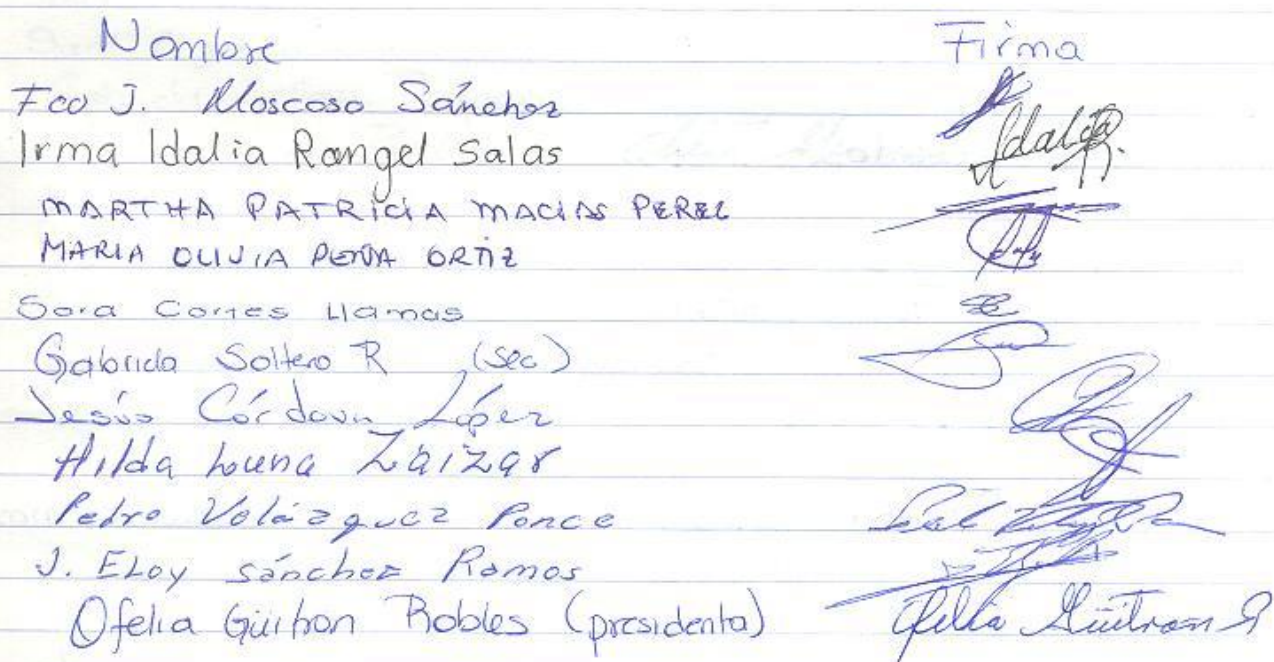 Nombre Firma
Fco J. Moscoso Sánchez
Irma Idalia Rangel Salas Idalia R.
MARTHA PATRICIA MACIAS PEREZ
MARIA OLIVIA PEÑA ORTIZ
Sara Cortes Llamas
Gabriela Soltero R (sec)
Jesús Córdova López
Hilda Luna Zaizar
Pedro Velázquez Ponce
J. ELoy sánchez Ramos
Ofelia Güitron Robles (presidenta) Ofelia Güitron R